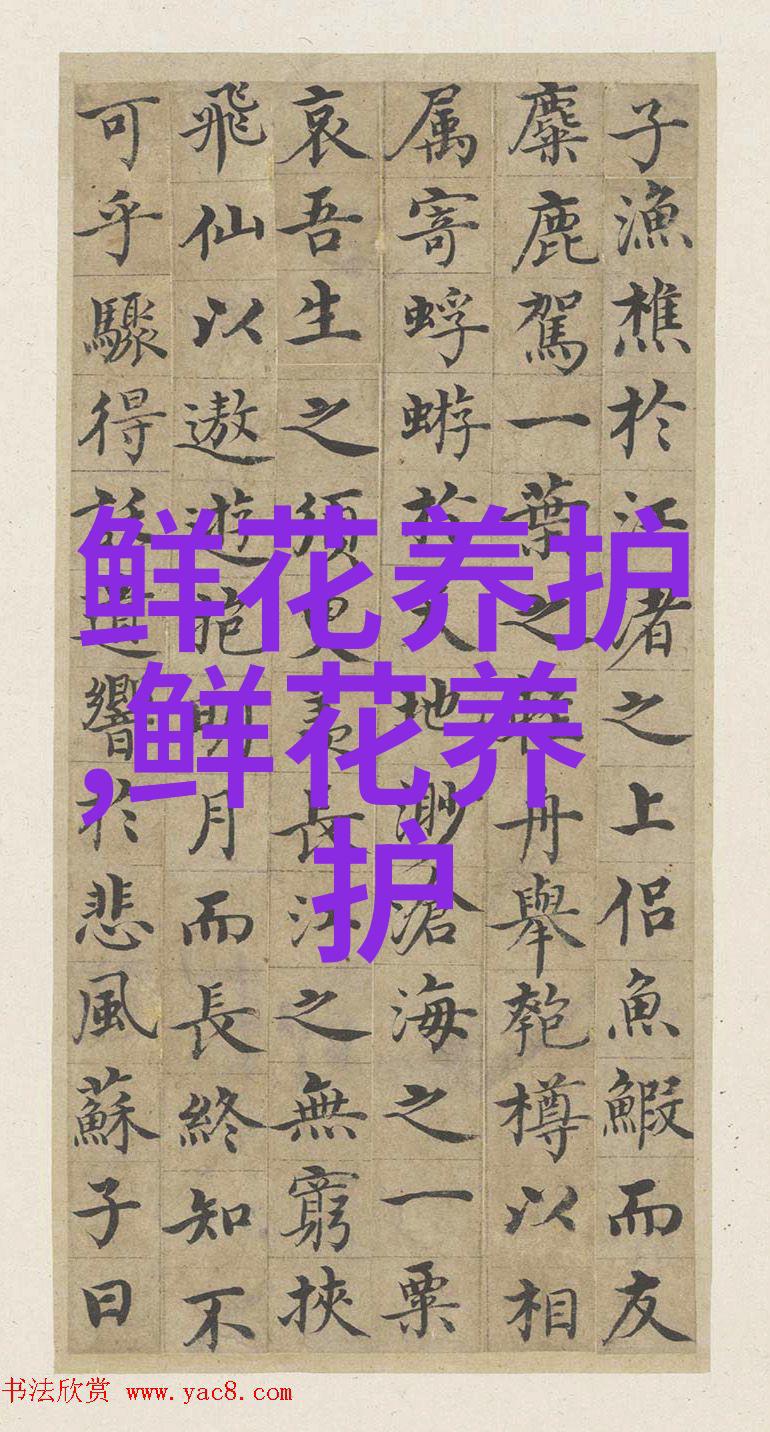 子漁樵於江渚之上侶魚鰕而友
麋鹿駕一葉之舟舉匏樽以相
属寄蜉蝣於天地渺滄海之一粟
哀吾生之須臾羨長江之無窮挾
飛仙以遨遊抱明月而長終知不
可乎驟得託遺響於悲風蘇子曰
鲜花养护
,鲜花养
护
书法欣赏 www.yac8.com